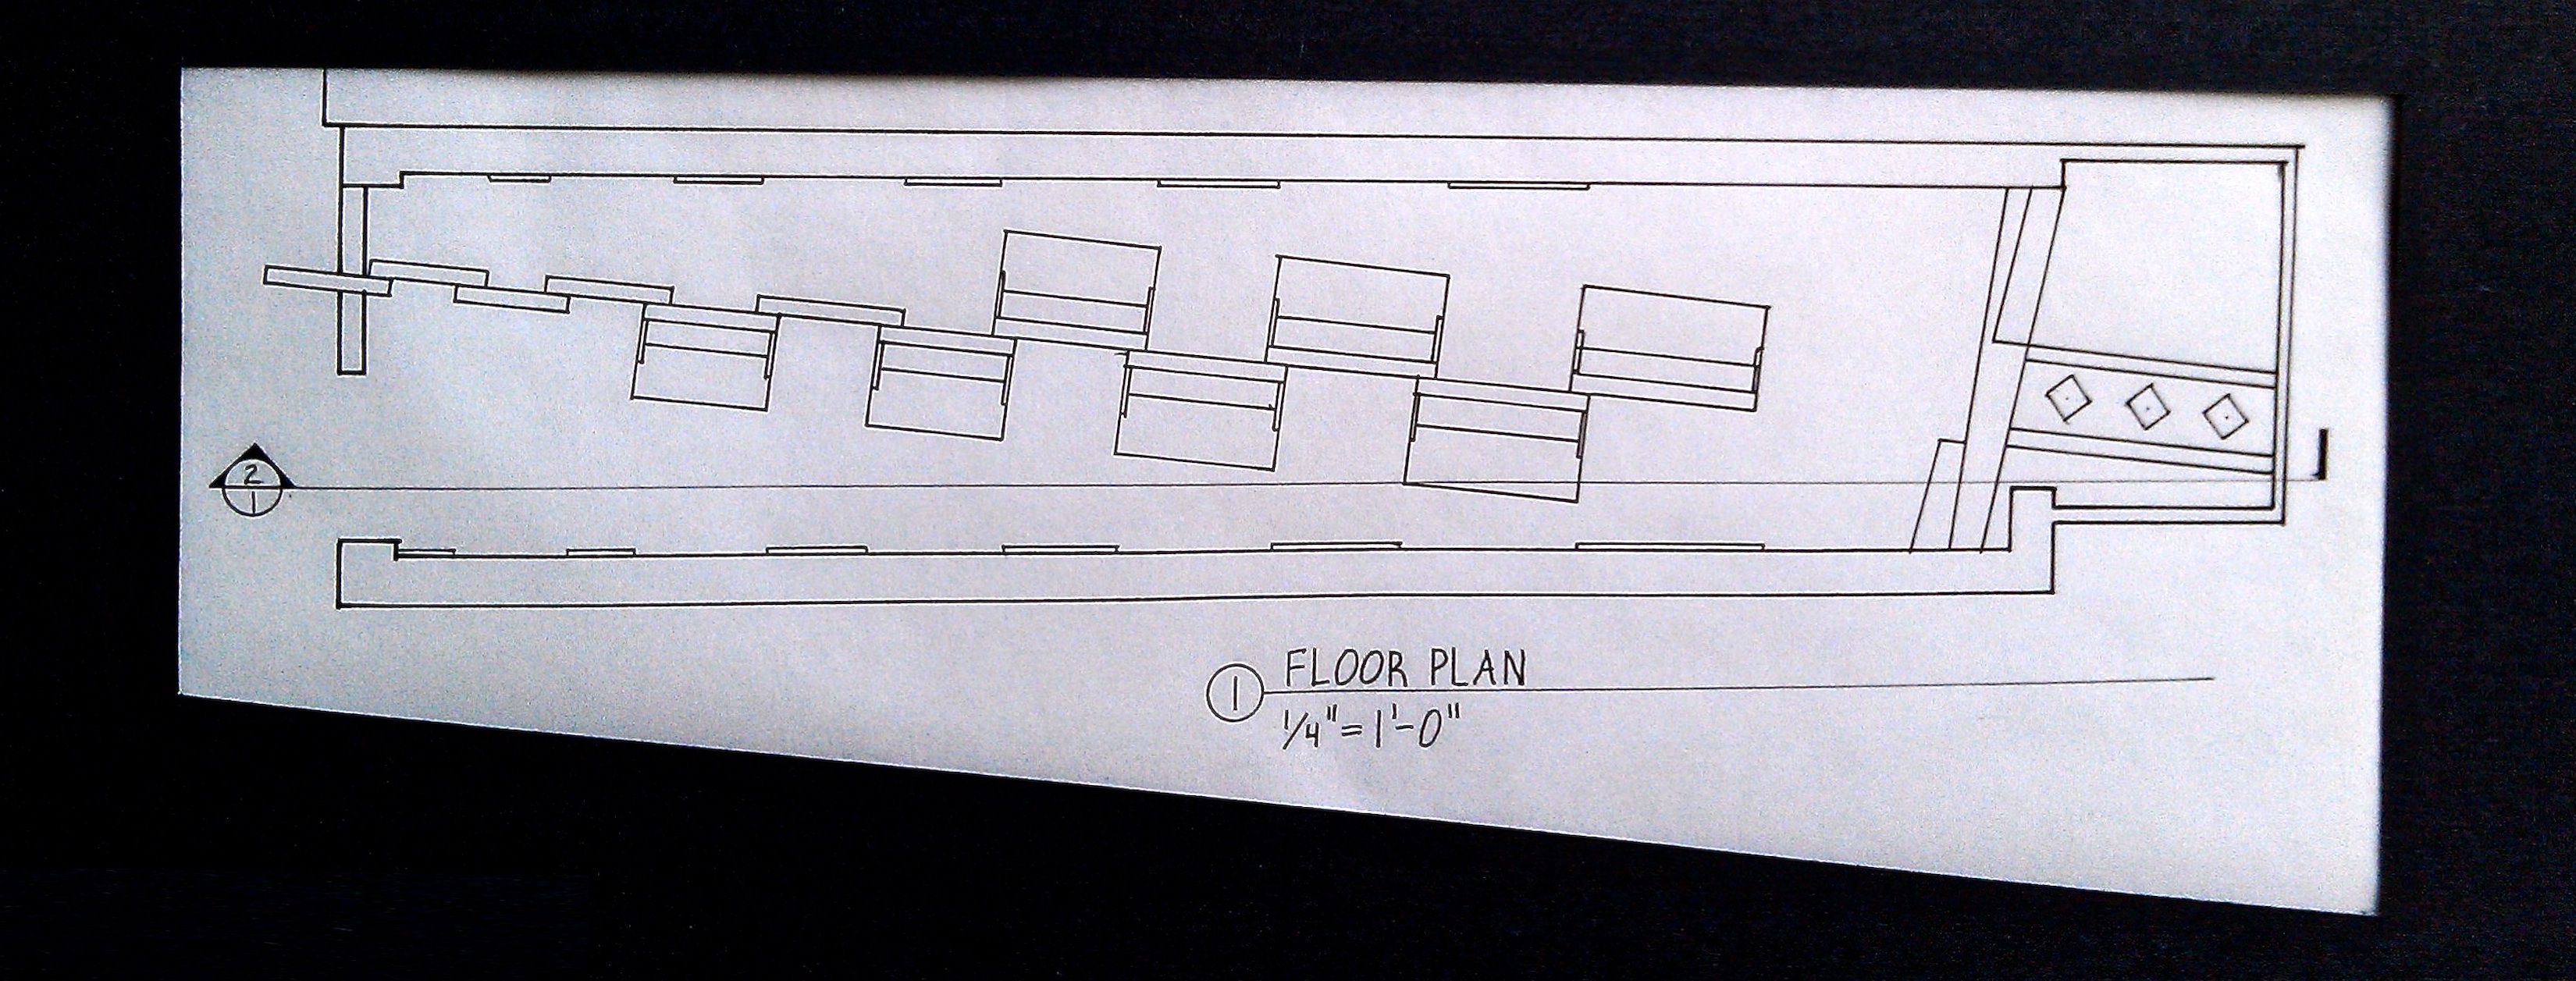 2
1
1 FLOOR PLAN
1/4"=1'-0"